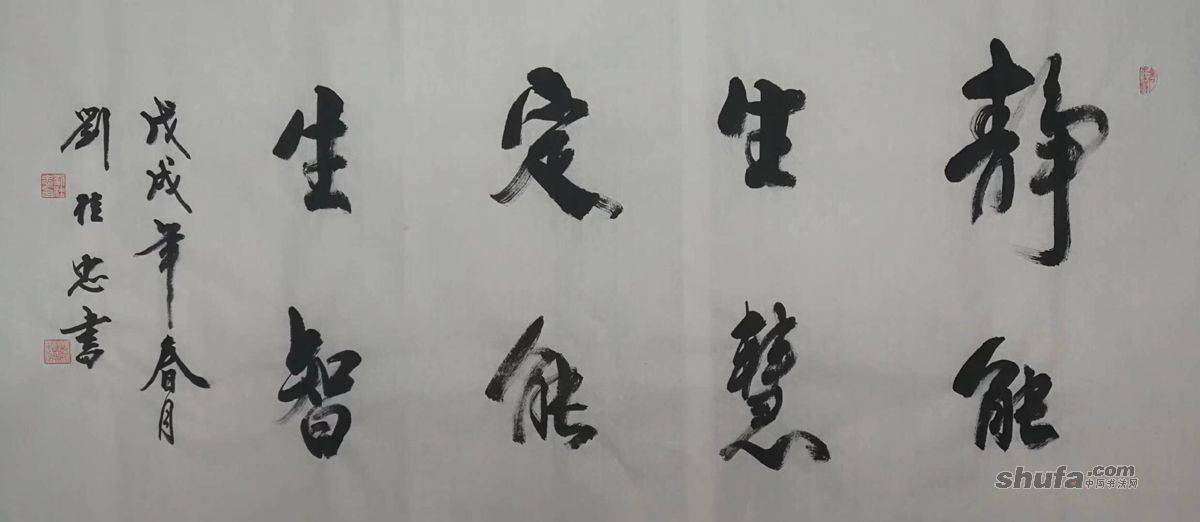 静能
生慧
定能
生智
戊戌年春月
劉桂忠書
shufa.com
中国书法网